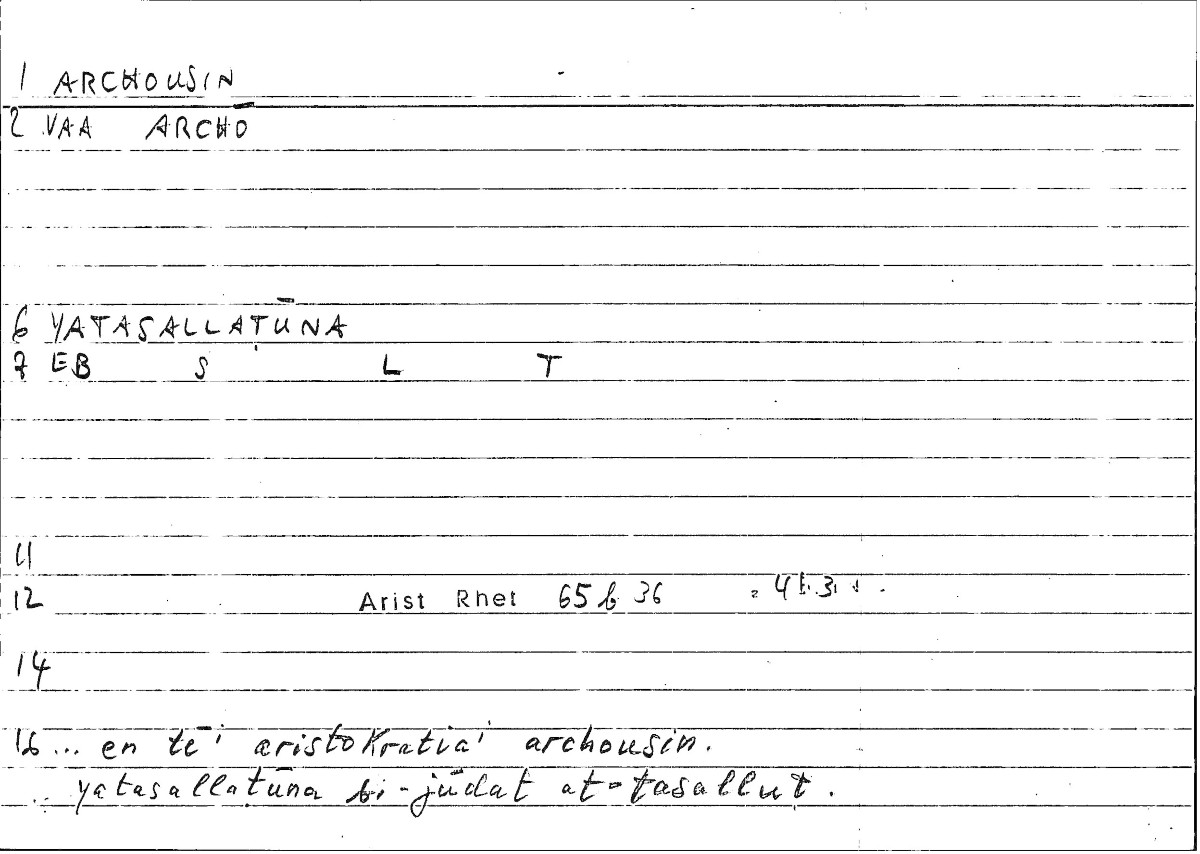 1 ARCHOUSIN
2 VAA ARCHŌ
6 YATASALLAṬŪNA
7 EB S L Ṭ
11
12 Arist Rhet 65 b 36
14
16 ... en tē' aristokratia' archousin.
yatasallaṭūna bi-jūdat at-tasalluṭ.